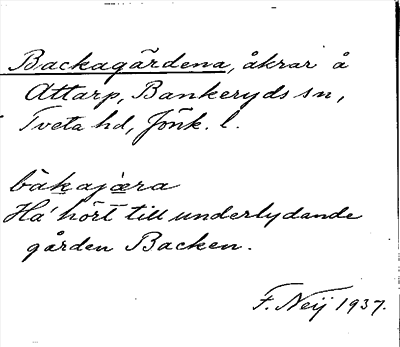 Backagärdena, åkrar å
Attarp, Bankeryds sn,
Tveta hd, Jönk. l.
bàkajæra
Ha' hört till underlydande
gården Backen.
F. Neij 1937.